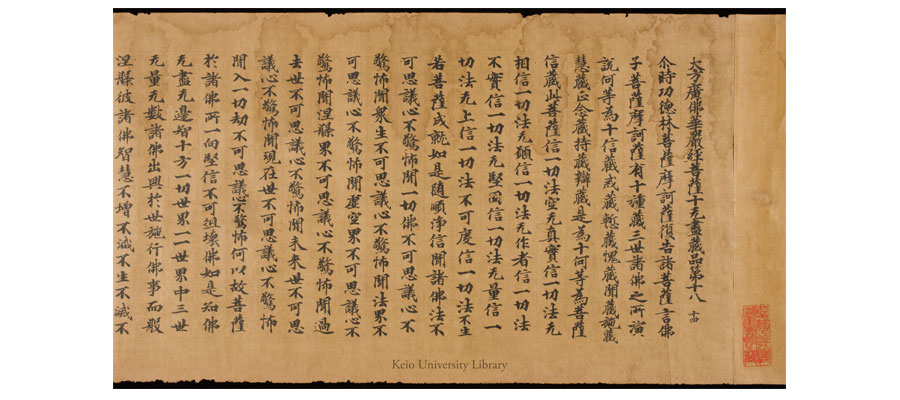 大方廣佛華嚴經菩薩十无盡藏品第十八 十四
尒時功德林菩薩摩訶薩復告諸菩薩言佛
子菩薩摩訶薩有十種藏三世諸佛之所演
說何等為十信藏戒藏慙藏愧藏聞藏施藏
慧藏正念藏持藏辯藏是為十何等為菩薩
信藏此菩薩信一切法空无真實信一切法无
相信一切法无願信一切法无作者信一切法
不實信一切法无堅固信一切法无量信一
切法无上信一切法不可度信一切法不生
若菩薩成就如是隨順淨信聞諸佛法不
可思議心不驚怖聞一切佛不可思議心不
驚怖聞衆生不可思議心不驚怖聞法界不
可思議心不驚怖聞虛空界不可思議心不
驚怖聞涅槃界不可思議心不驚怖聞過
去世不可思議心不驚怖聞未來世不可思
議心不驚怖聞現在世不可思議心不驚怖
聞入一切劫不可思議心不驚怖何以故菩薩
於諸佛所一向堅信不可俎壞佛如是知佛
无盡无邊智十方一切世界一一世界中三世
无量无數諸佛出興於世施行佛事而般
涅槃彼諸佛智慧不增不減不生不滅不
Keio University Library